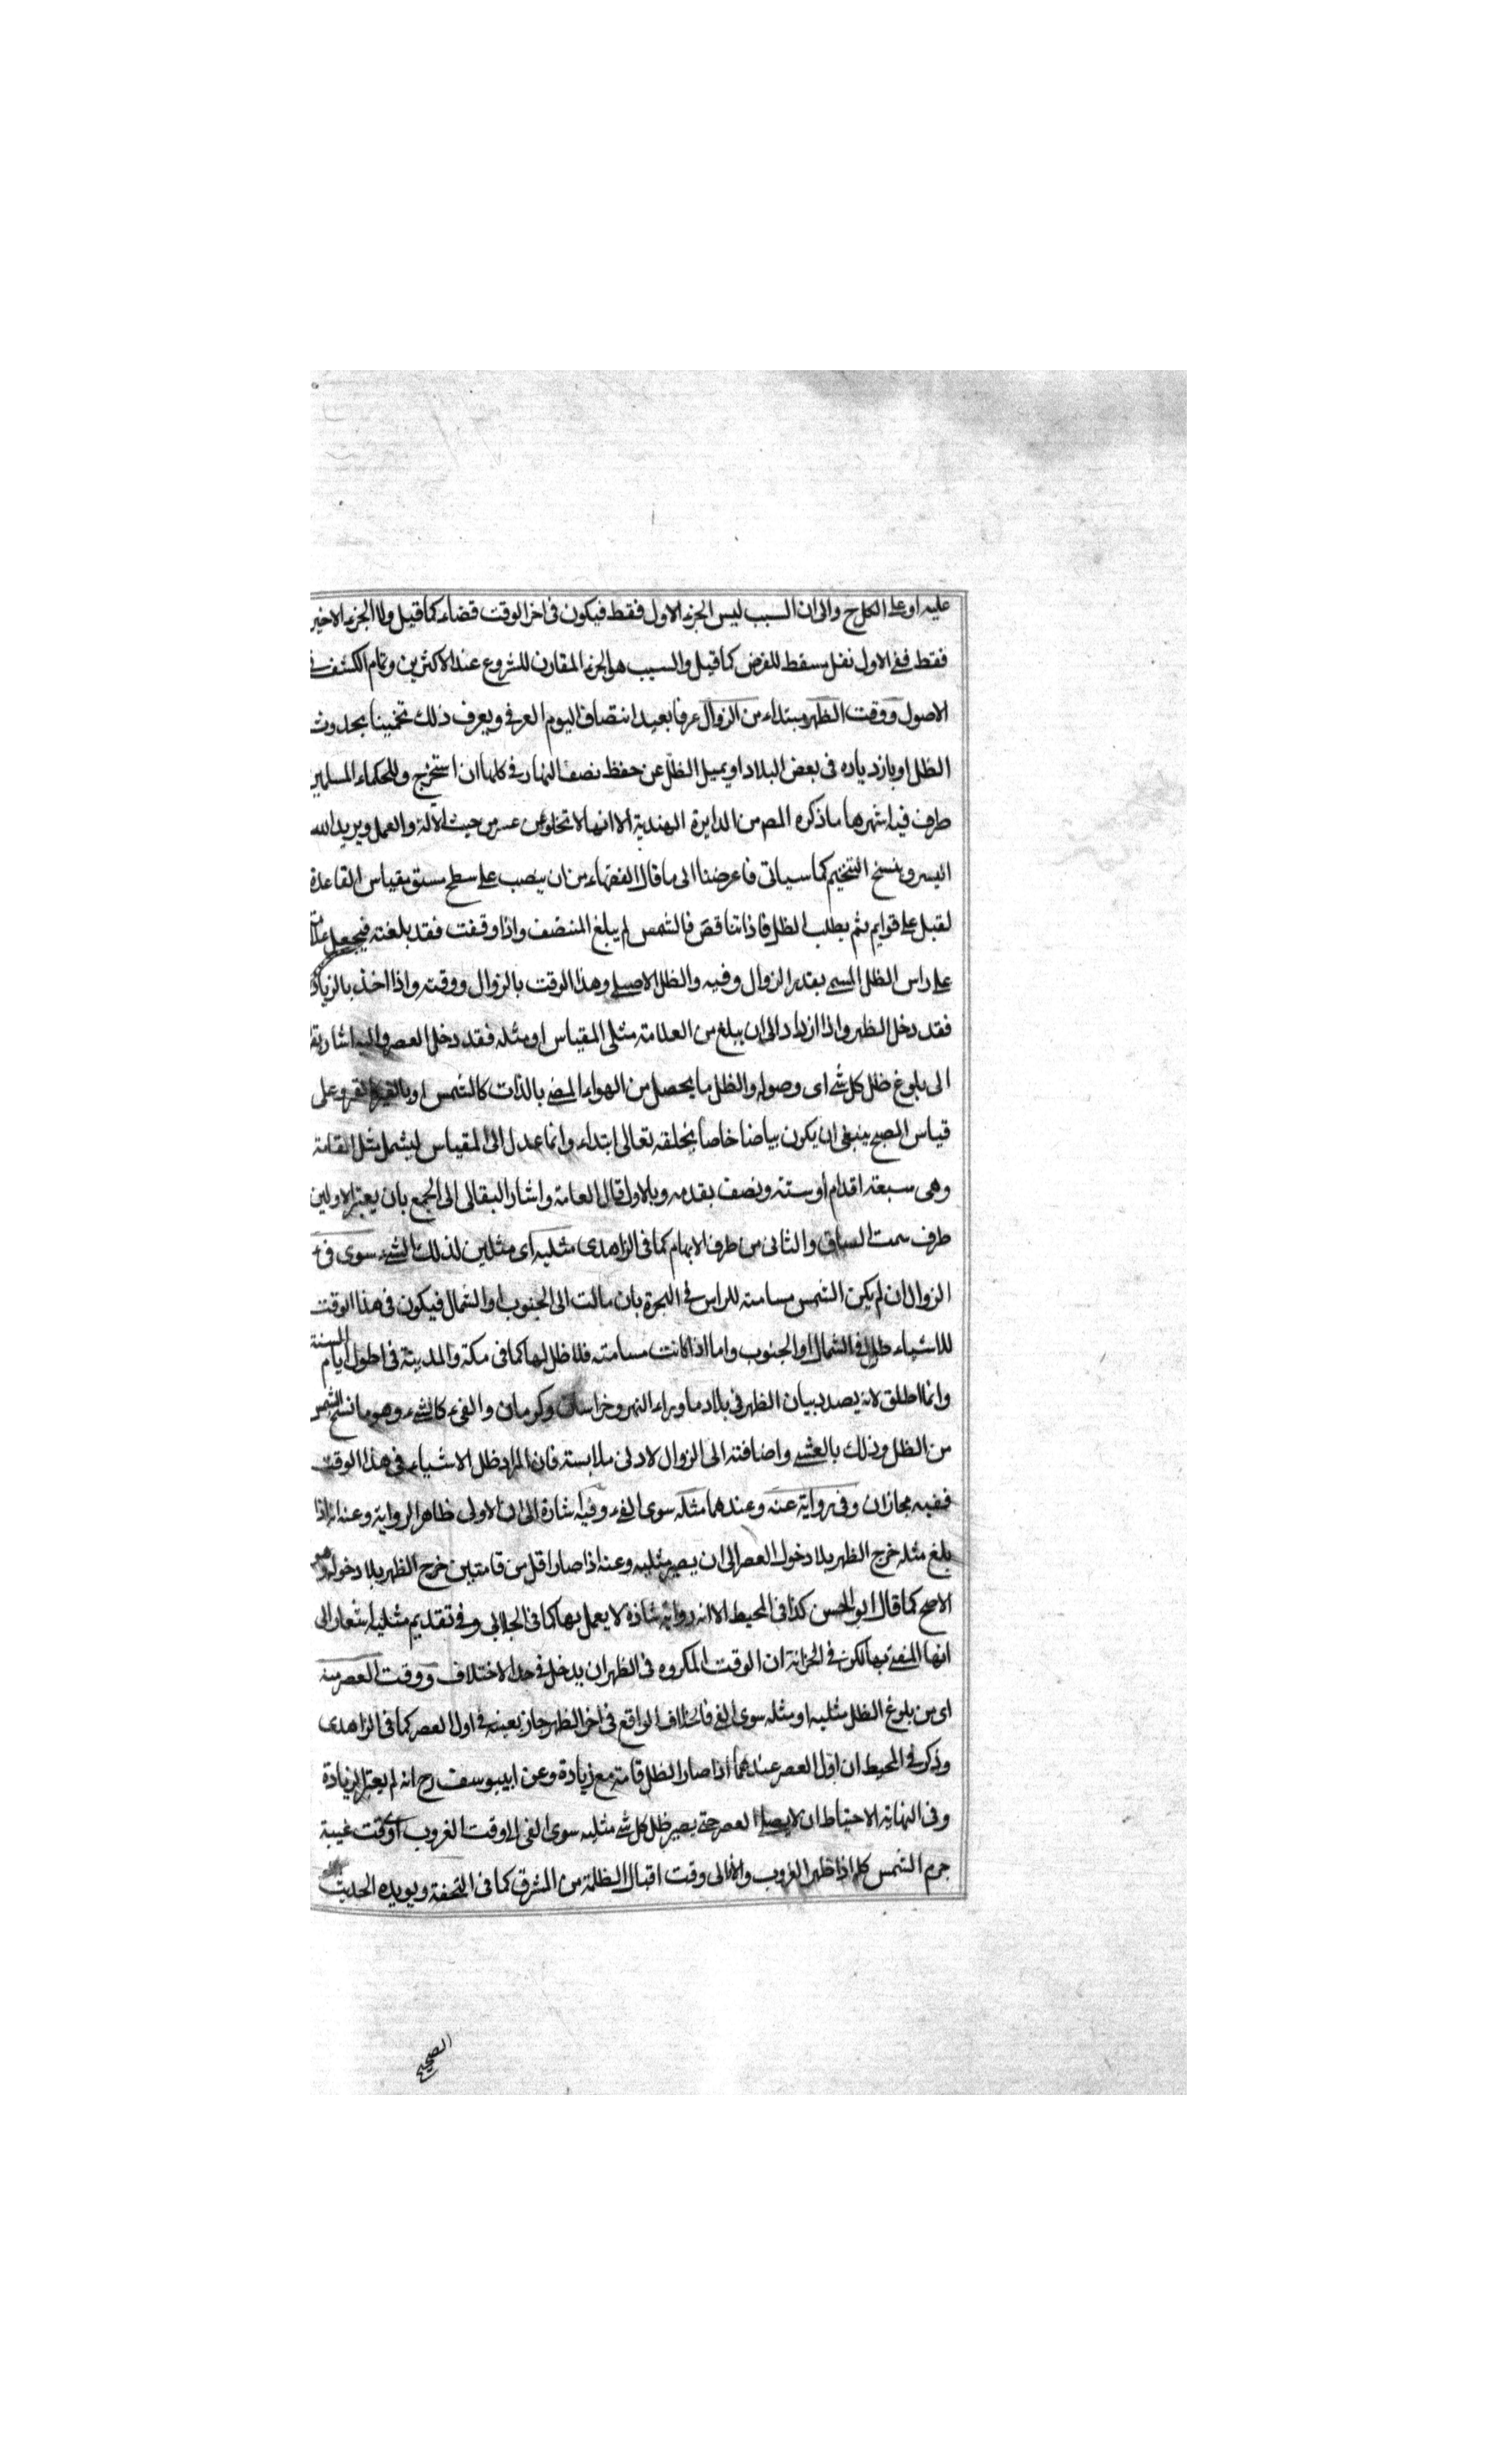 عليه او على الكل ح والى ان السبب ليس الجزء الاول فقط فيكون فى اخر الوقت قضاء كما قيل ولا الجزء الاخير
فقط ففى الاول نفل يسقط للفرض كما قيل والسبب هو الجزء المقارن للشروع عند الاكثرين وتمام الكشف فى
الاصول ووقت الظهر مبتداء من الزوال عرفا بعيد انتصاف اليوم العرفى ويعرف ذلك تخمينا بحدوث
الظل او بازدياده فى بعض البلاد او بميل الظل عن حفظ نصف النهار فى كلها ان استخرج وللحكماء المسلمين
طرف فيه اشهرها ما ذكره المص من الدايرة الهندية الا انها لا تخلو عن عسر من حيث الآلة والعمل ويريد الله
اليسر وينسخ التنجيم كما سياتى فاعرضنا الى ما قال الفقهاء من ان ينصب على سطح مستو مقياس القاعدة
لقبل على قوايم ثم يطلب الظل فاذا تناقص فالشمس لم يبلغ المنتصف واذا وقفت فقد بلغته فيجعل علامة
على راس الظل المسمى بقدر الزوال وفيه والظل الاصلى وهذا الوقت بالزوال ووقته واذا اخذ بالزيادة
فقد دخل الظهر واذا ازداد الى ان يبلغ من العلامة مثلى المقياس او مثله فقد دخل العصر واليه اشار بقـ
الى بلوغ ظل كل شئ اى وصوله والظل ما يحصل من الهواء المضى بالذات كالشمس او بالغير كالقمر وعلى
قياس الصبح ينبغى ان يكون بياضا خاصا يخلقه تعالى ابتداء وانما عدل الى المقياس ليشمل مثل القامة
وهى سبعة اقدام او ستة ونصف بقدمه وبالاول قال العامة واشار البقالى الى الجمع بان يعتبر الاول من
طرف سمت الساق والثانى من طرف الابهام كما فى الزاهدى مثليه اى مثلين لذلك الشئ سوى فى
الزوال ان لم يكن الشمس مسامتة للراس فى الحجرة بان مالت الى الجنوب او الشمال فيكون فى هذا الوقت
للاشياء ظل فى الشمال او الجنوب واما اذا كانت مسامتة فلا ظل لها كما فى مكة والمدينة فى اطول ايام السنة
وانما اطلق لانه بصدد بيان الظهر فى بلاد ما وراء النهر وخراسان وكرمان والفئ كالشئ وهو ما نسخ الشمس
من الظل وذلك بالعشى واضافته الى الزوال لادنى ملابسة فان المراد ظل الاشياء فى هذا الوقت
ففيه مجازان وفى رواية عنه وعندهما مثله سوى الفئ وفيه اشارة الى ان الاولى ظاهر الرواية وعنه انه اذا
بلغ مثله خرج الظهر بلا دخول العصر الى ان يصير مثليه وعنه اذا صار اقل من قامتين خرج الظهر بلا دخوله وهو
الاصح كما قال ابو الحسن كذا فى المحيط الا انه رواية شاذة لا يعمل بها كما فى الجلابى وفى تقديم مثليه اشعار الى
انها المفتى بها لكن فى الخزانة ان الوقت المكروه فى الظهر ان يدخل فى حد الاختلاف ووقت العصر منه
اى من بلوغ الظل مثليه او مثله سوى الفئ فالخلاف الواقع فى اخر الظهر جار بعينه فى اول العصر كما فى الزاهدى
وذكر فى المحيط ان اول العصر عندهما اذا صار الظل قامة مع زيادة وعن ابيوسف رح انه لم يعتبر الزيادة
وفى النهاية الاحتياط ان لا يصلى العصر حتى يصير ظل كل شئ مثليه سوى الفئ الى وقت الغروب اى وقت غيبة
جرم الشمس كله اذا ظهر الغروب والا فالى وقت اقبال الظلمة من المشرق كما فى التحفة ويؤيده الحديث
الصحيح